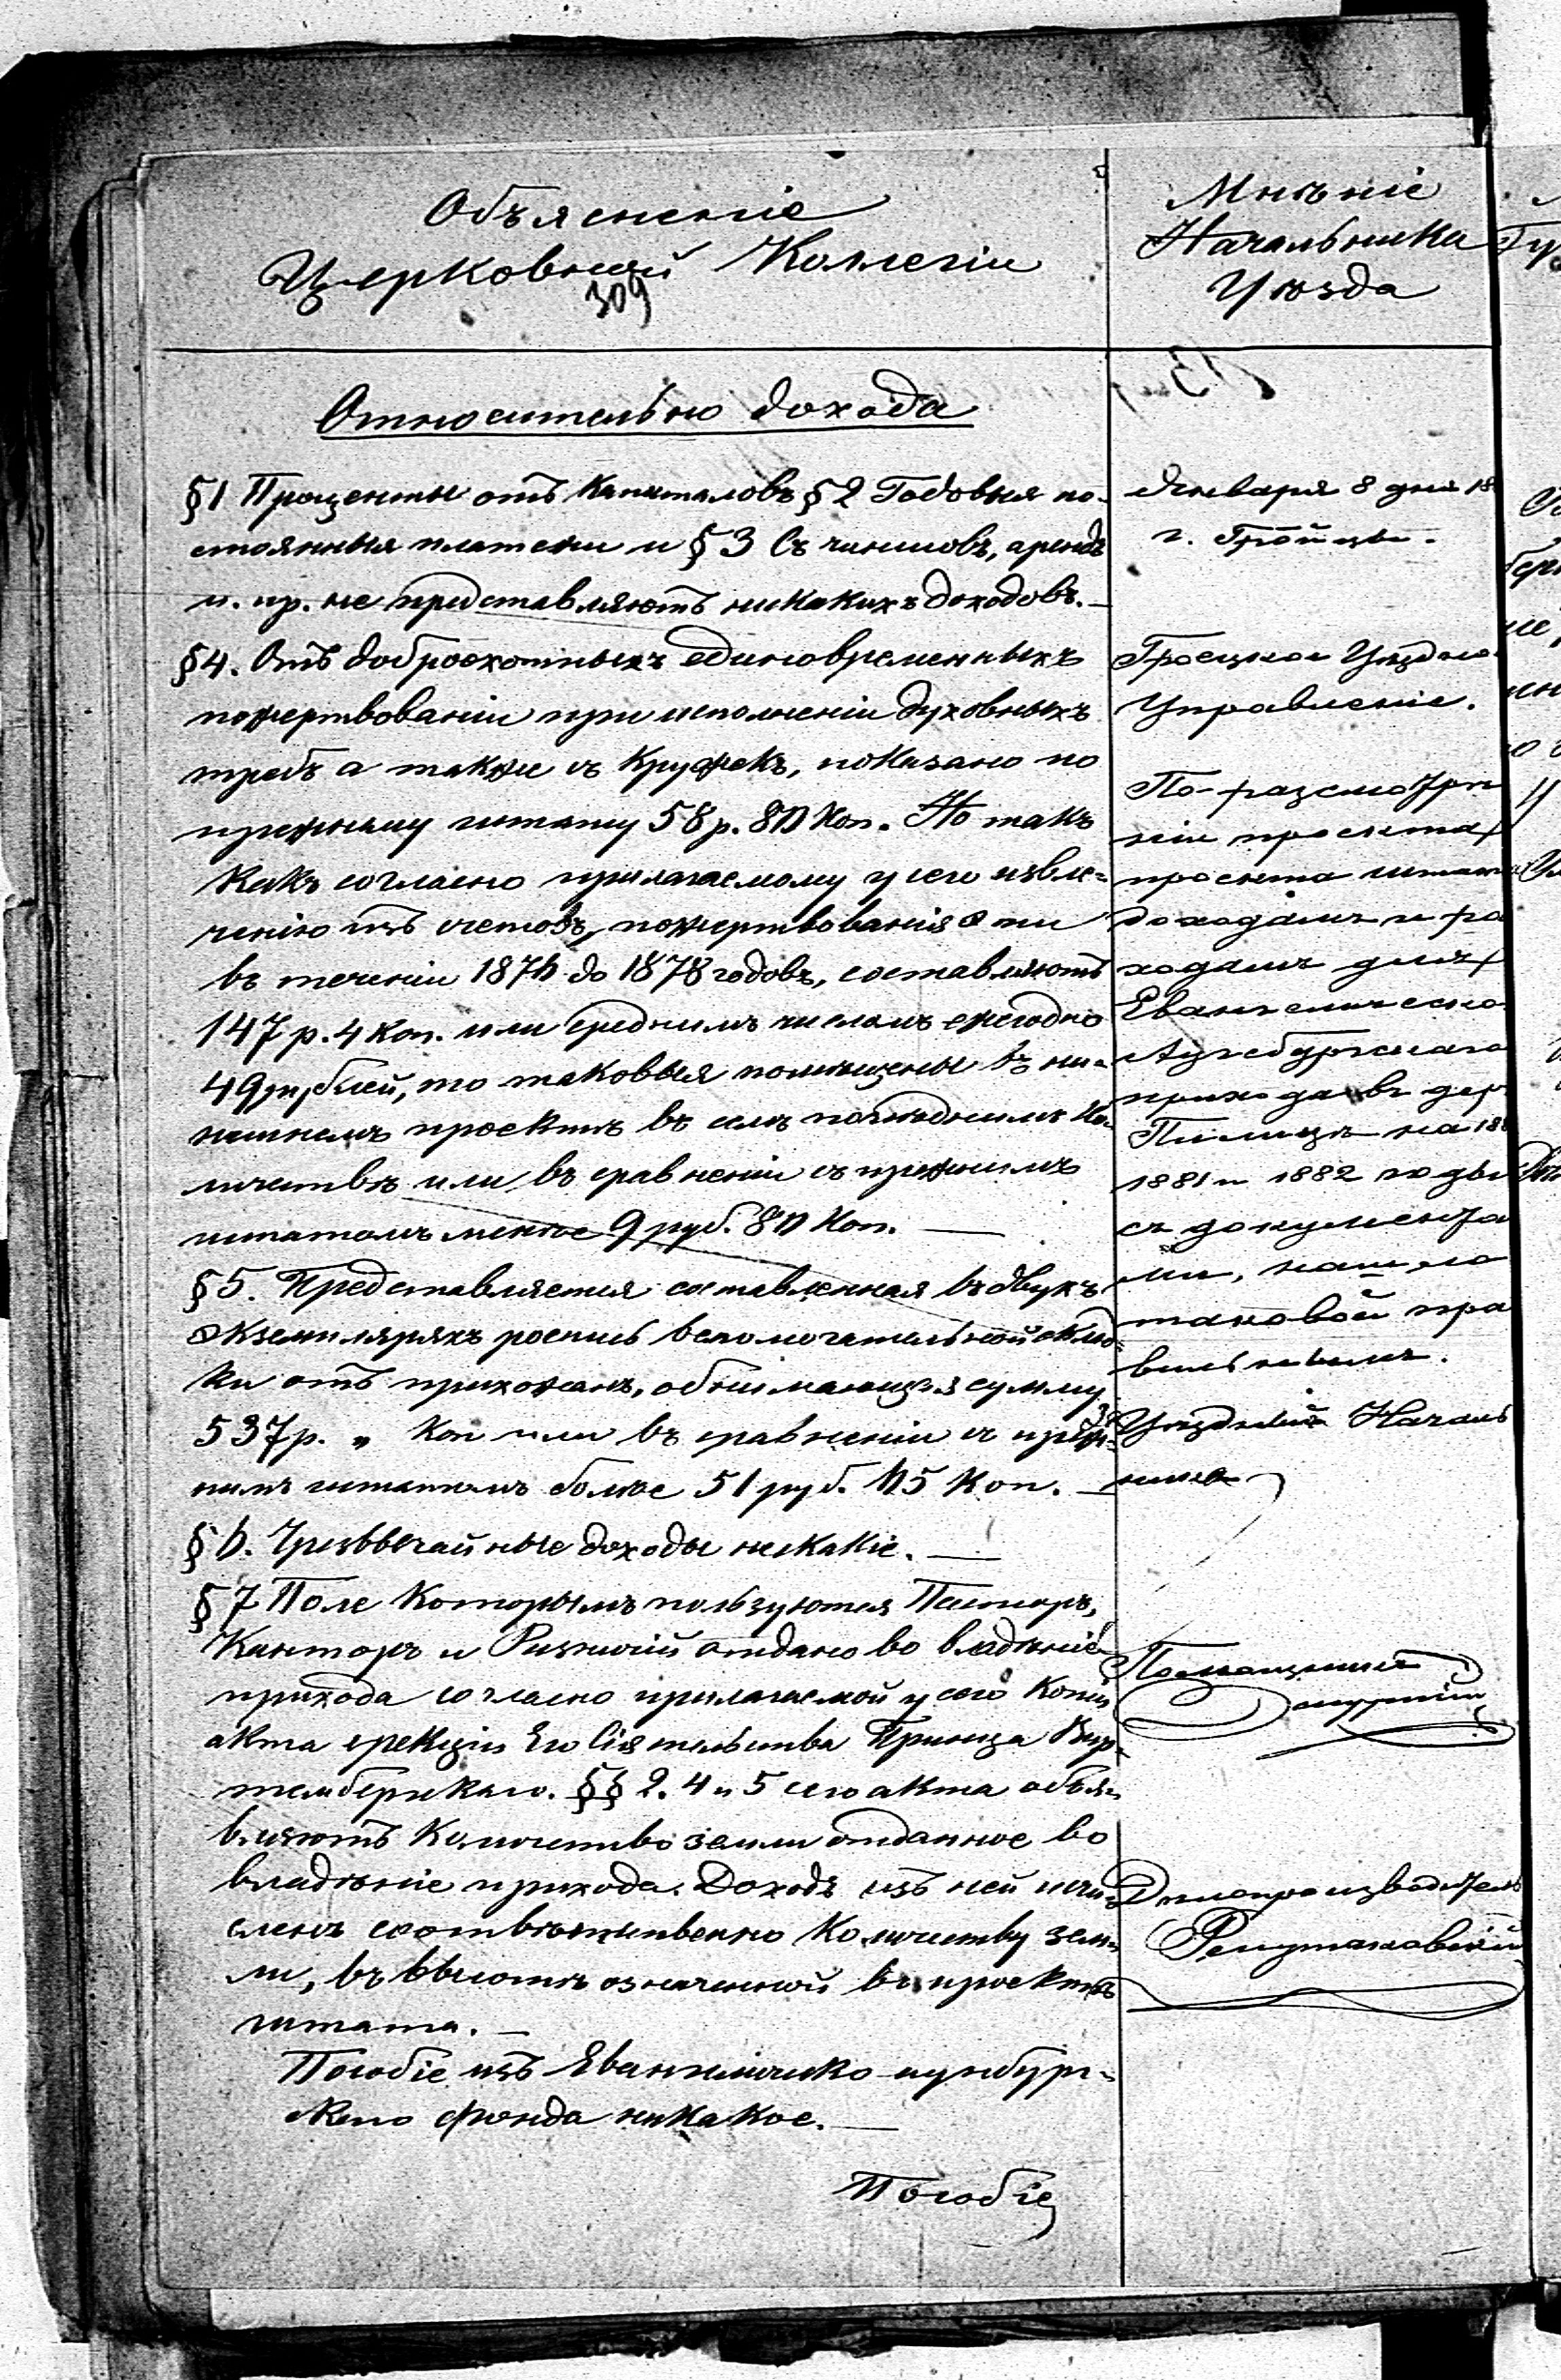 Объясненіе
Церковной Коллегіи
309
Относительно дохода
§1 Проценты отъ Капиталовъ §2 Годовыя по-
стоянныя платежи и §3 Съ чиншовъ, арендъ
и. пр. не представляютъ никакихъ доходовъ.—
§4. Отъ доброохотныхъ единовременныхъ
пожертвованіи при исполненіи духовныхъ
требъ а также съ Кружекъ, показано по
прежнему штату 58 р. 80 Коп. Но такъ
Какъ согласно прилагаемому у сего извле=
ченію изъ счетовъ, пожертвованія эти
въ теченіи 1876 до 1878 годовъ, составляютъ
147 р. 4 Коп. или среднимъ числомъ ежегодно
49 рублей, то таковыя помѣщены въ ны=
нешнемъ проектѣ въ семъ послѣднимъ Ко-
личествѣ или въ сравненіи съ прежнимъ
штатомъ менѣе 9 руб. 80 Коп. —
§5. Представляется составленная въ двухъ
экземплярахъ роспись вспомогательной склад=
ки отъ прихожанъ, обнимающая сумму
537 р. „ Коп или въ сравненіи съ преж=
нимъ штатомъ болѣе 51 руб. 65 Коп. —
§6. Чрезвычайные доходы никакіе. —
§7 Поле Которымъ пользуются Пасторъ,
Канторъ и Ризничій отдано во владѣніе
прихода согласно прилагаемой у сего Копіи
акта эрекціи Его Сіятельства Принца Вир-
тембергскаго. §§ 2. 4 и 5 сего акта объя=
вляютъ Количество земли отданное во
владѣніе прихода. Доходъ изъ ней исчи=
сленъ соотвѣтственно Количеству зем=
ли, въ высотѣ означенной въ проектѣ
штата. —
Пособіе изъ Евангелическо-аугсбург=
скаго фонда никакое. —
Пособіе
Мнѣніе
Начальника
Уѣзда
Января 8 дня 18
г. Гройцы.
Гроецкое Уѣздно
Управленіе.
По разсмотрѣ
ніи проекта
проекта штата
доходамъ и ра
ходамъ для
Евангелическо
Аугсбургскаго
прихода въ дер
Пилицѣ на 188
1881 и 1882 годы
съ документа
ми, нашло
таковой пра
вильнымъ.
Уѣздный Началь
никъ
Помощникъ
Дѣлопроизводитель